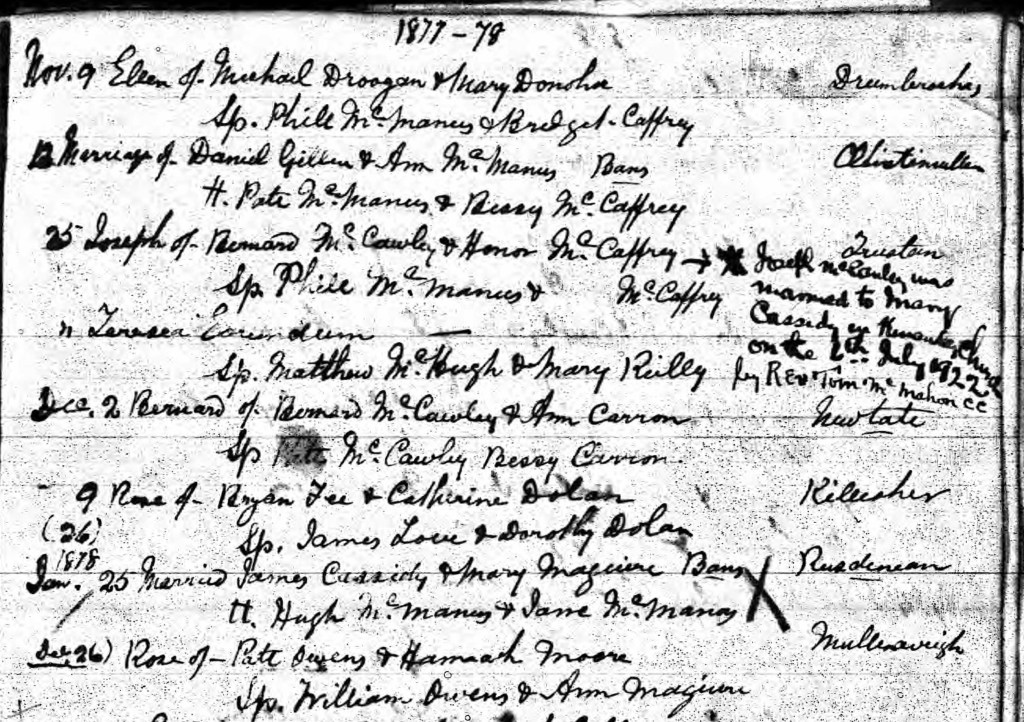 1877-78
Nov. 9 Eleen of Michael Droogan & Mary Donohu Drumbrochas
Sp. Phill McManus & Bridget Caffrey
Marriage of Daniel Gillen & Ann McManus Bans
tt. Patt McManus & Bessy McCaffrey
25 Joseph of Bernard McCawley & Honor McCaffrey → Trustan
Joseph McCauley was
Sp. Phill McManus & McCaffrey
married to Mary
Cassidy in Church
" Teresea
on the July 1922
Sp. Matthew McHugh & Mary Reilly
by Rev Tom McMahon CC
Dec. 2 Bernard of Bernard McCawley & Ann Carron Newtate
Sp Patt McCawley Bessy Carron
9 Rose of Bryan Fee & Catherine Dolan Killesher
(26) Sp. James Love & Dorothy Dolan
1878
Jan. 25 Married James Cassidy & Mary Maguire Bans X
tt. Hugh McManus & Jane McManus
Dec 26) Rose of Patt Owens & Hannah Moore
Sp. William Owens & Ann Maguire